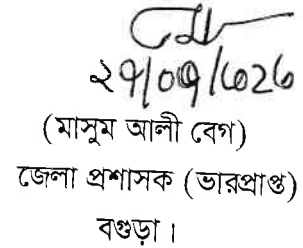 ২৭/০৭/২০২৬
(মাসুম আলী বেগ)
জেলা প্রশাসক (ভারপ্রাপ্ত)
বগুড়া।